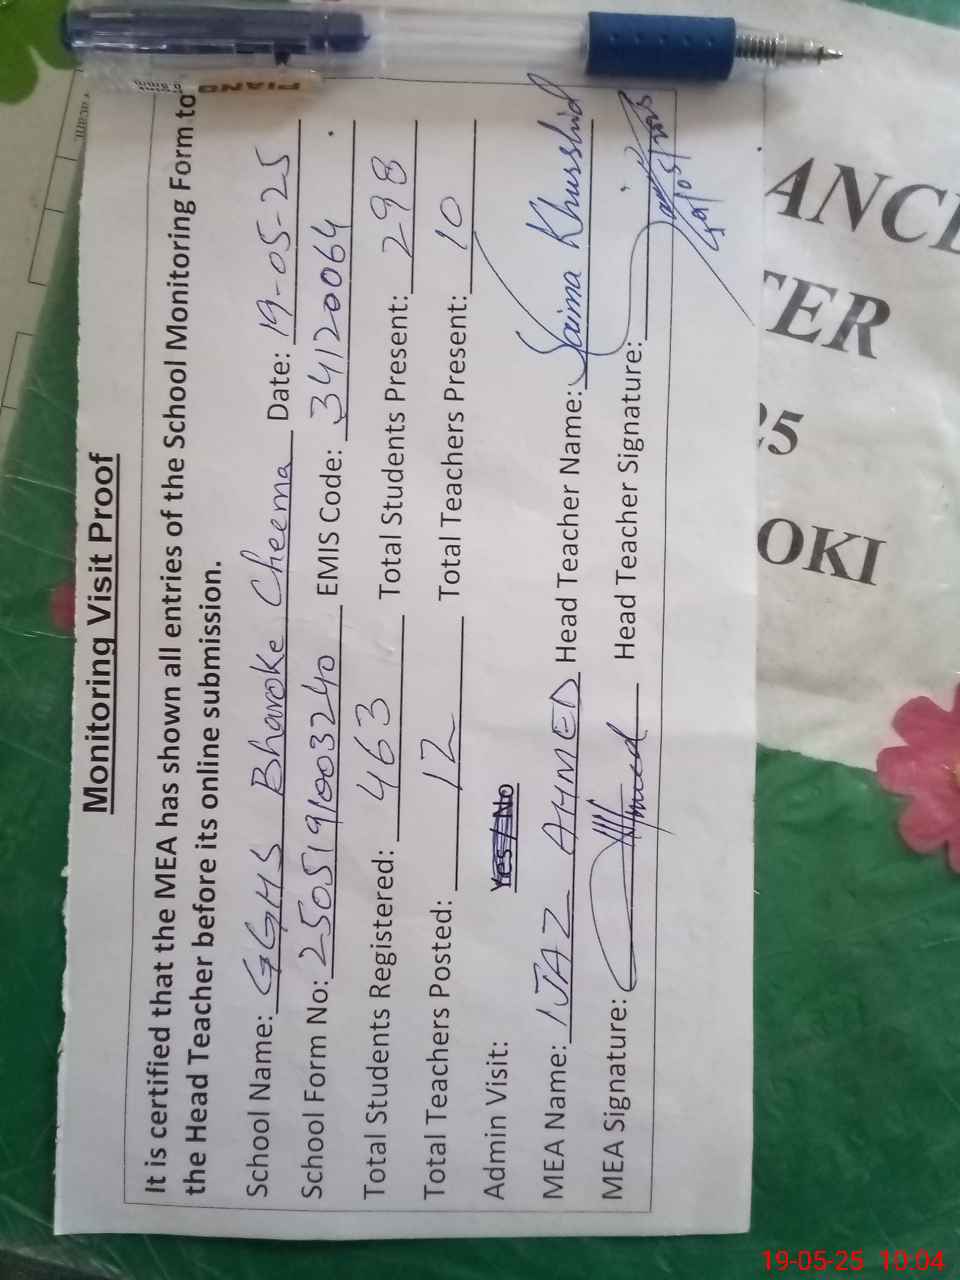 Monitoring Visit Proof
It is certified that the MEA has shown all entries of the School Monitoring Form to
the Head Teacher before its online submission.
School Name: GGHS Bharoke Cheema Date: 19-05-25
School Form No: 2505191003240 EMIS Code: 34120064
Total Students Registered: 463 Total Students Present: 298
Total Teachers Posted: 12 Total Teachers Present: 10
Admin Visit: Yes / No
MEA Name: IJAZ AHMED Head Teacher Name: Saima Khurshid
MEA Signature: Ahmed Head Teacher Signature:
19/05/2025
PIANO
ANCE
TER
25
OKI
19-05-25 10:04